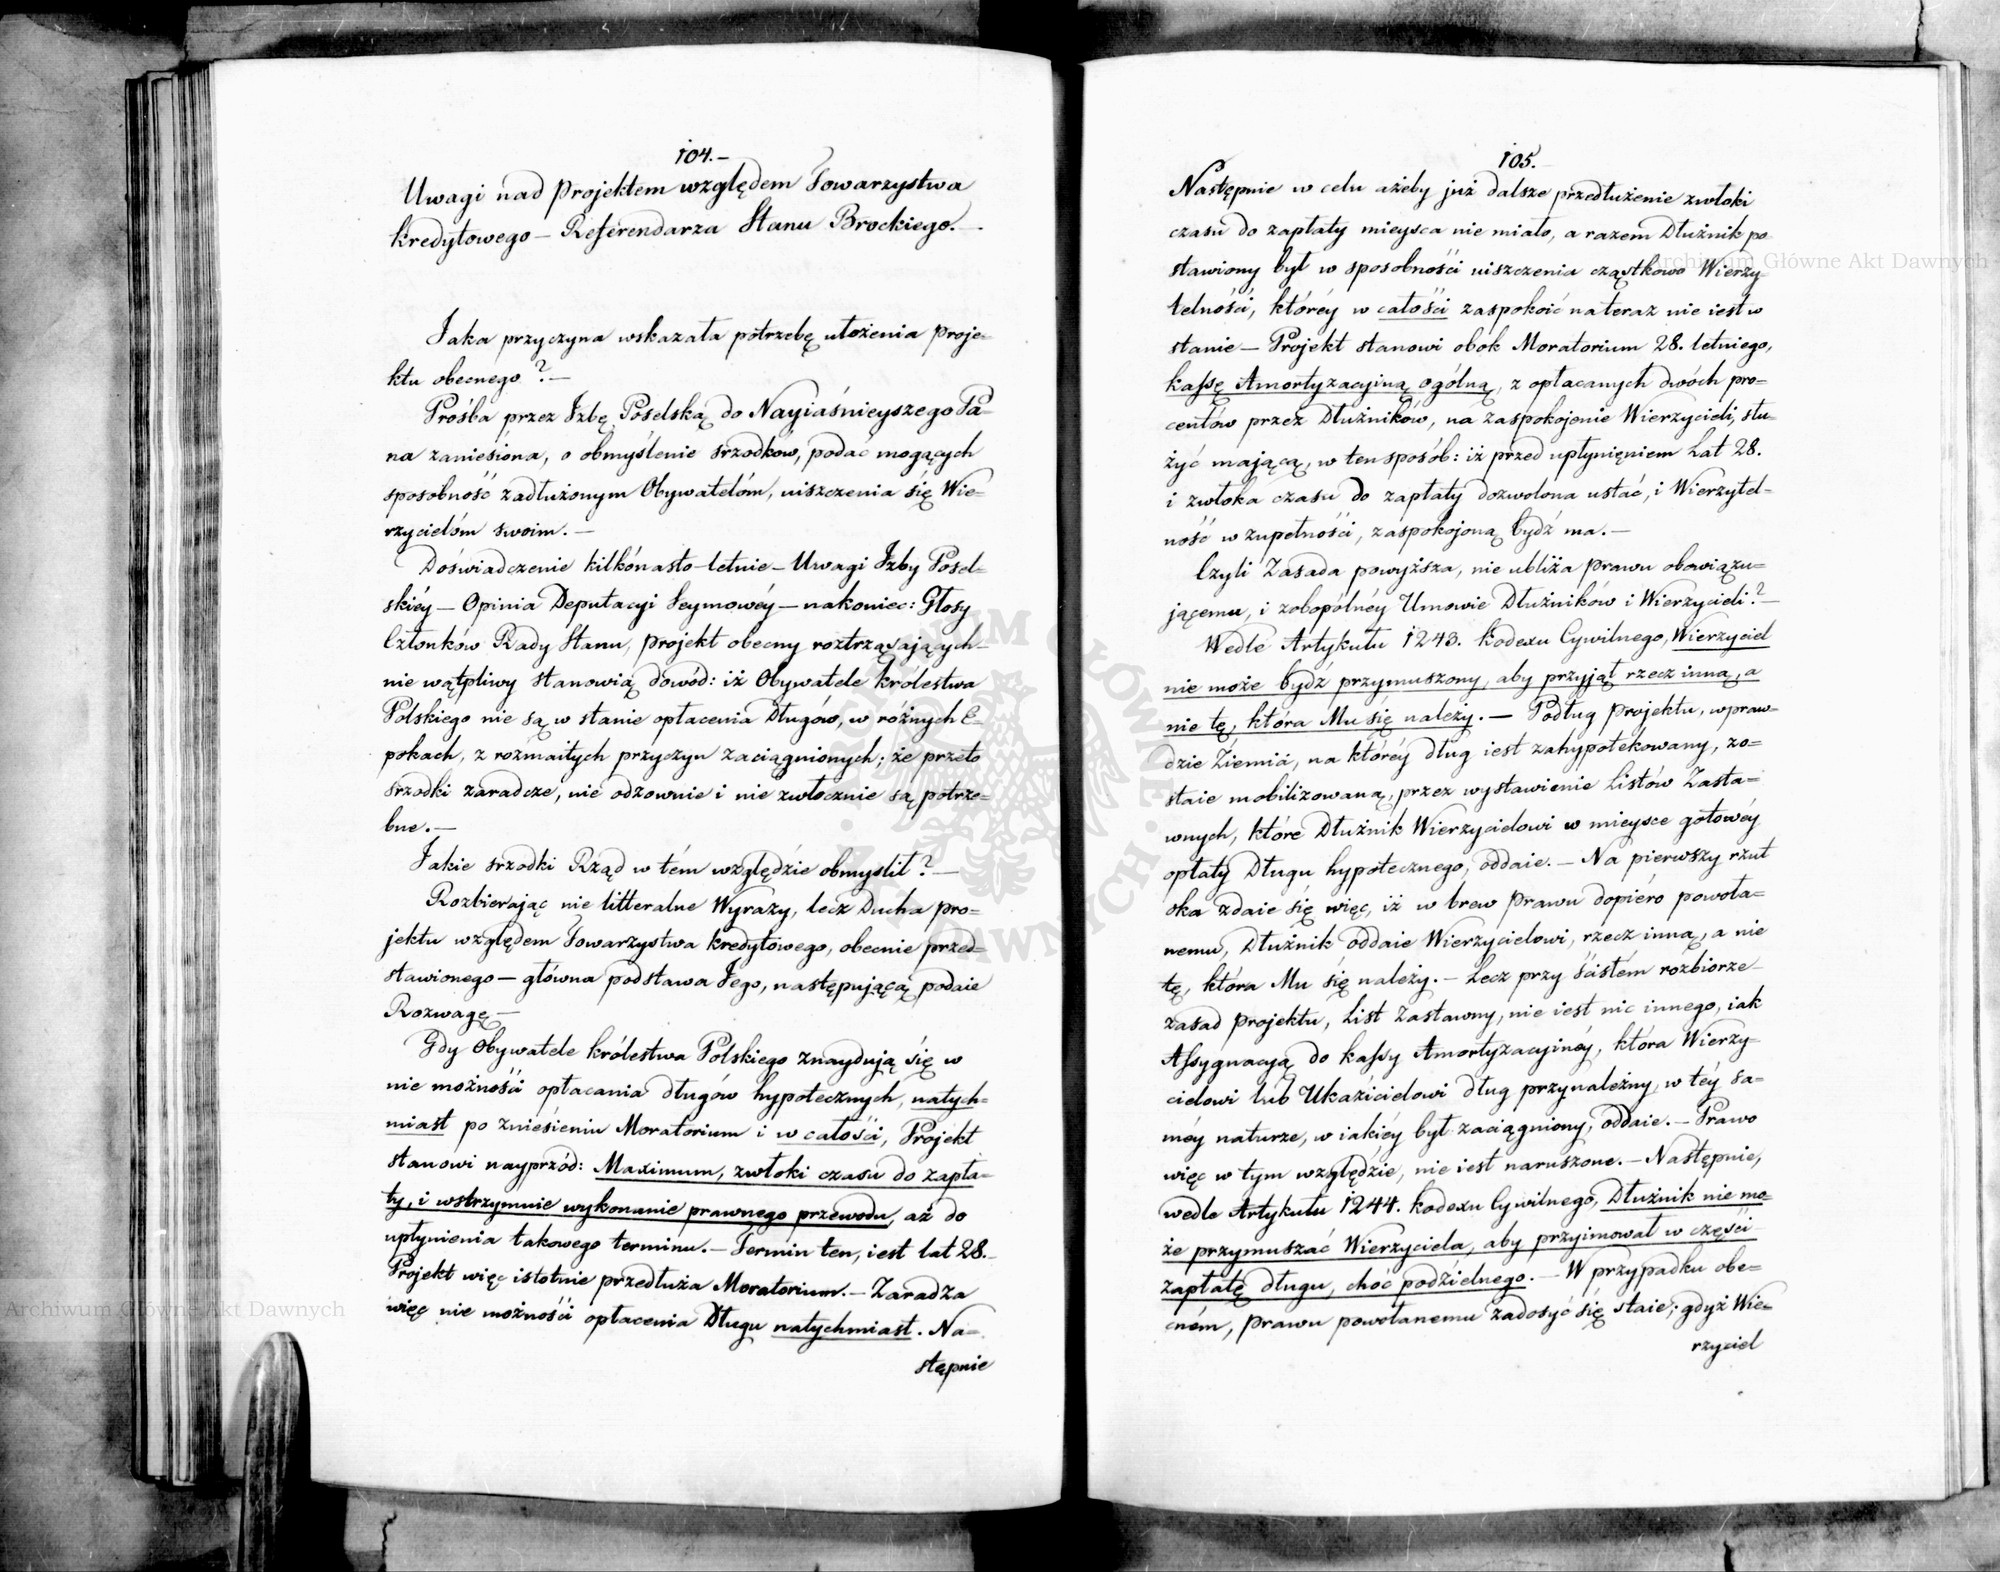 104.–
Uwagi nad Projektem względem Towarzystwa
kredytowego – Referendarza Stanu Brockiego. –
Jaka przyczyna wskazała potrzebę ułożenia Proje=
ktu obecnego ? –
Prośba przez Izbę Poselską do Nayiaśnieyszego Pa=
na zaniesióna, o obmyślenie srzodków, podać mogących
sposobność zadłużonym Obywatelóm, uiszczenia się Wie=
rzycielóm swoim. –
Doświadczenie kilkónasto-letnie – Uwagi Izby Posel=
skiéy – Opinia Deputacyi Seymowéy – nakoniec: Głosy
Członków Rady Stanu, projekt obecny roztrząsających –
nie wątpliwy stanowią dowód: iż Obywatele królestwa
Polskiego nie są w stanie opłacenia Długów, w różnych E=
pokach, z rozmaitych przyczyn zaciągnionych; że przeto
srzodki zaradcze, nie odzownie i nie zwłocznie są potrze=
bne. –
Jakie srzodki Rząd w tém względzie obmyslił ? –
Rozbierając nie litteralne Wyrazy, lecz Ducha pro=
jektu względem Towarzystwa kredytowego, obecnie przed=
stawionego – główna podstawa Jego, następującą podaie
Rozwagę –
Gdy Obywatele królestwa Polskiego znaydują się w
nie możności opłacania długów hypotecznych, natych=
miast po zniesieniu Moratorium i w całości, Projekt
stanowi nayprzód: Maximum, zwłoki czasu do zapła=
ty, i wstrzymnie wykonanie prawnego przewodu, aż do
upłynienia takowego terminu. – Termin ten, iest lat 28. –
Projekt więc istotnie przedłuża Moratorium. – Zaradza
więc nie możności opłacenia Długu natychmiast. Na=
stępnie
105.
Następnie w celu ażeby już dalsze przedłużenie zwłoki
czasu do zapłaty mieysca nie miało, a razem Dłużnik po
stawiony był w sposobności uiszczenia cząstkowo Wierzy=
telności, któréy w całości zaspokoić nateraz nie iest w
stanie – Projekt stanowi obok Moratorium 28. letniego,
kassę Amortyzacyiną ogólną, z opłacanych dwóch pro=
centów przez Dłużników, na zaspokojenie Wierzycieli, słu=
żyć mającą, w ten sposób: iż przed upłynięniem Lat 28.
i zwłoka czasu do zapłaty dozwolona ustać, i Wierzytel=
ność w zupełności, zaspokojoną bydź ma. –
Czyli Zasada powyższa, nie ubliża Prawu obowiązu=
jącemu, i zobopólnéy Umowie Dłużników i Wierzycieli ? –
Wedle Artykułu 1243. kodexu Cywilnego, Wierzyciel
nie może bydź przymuszony, aby przyjął rzecz inną, a
nie tę, która Mu się należy. – Podług Projektu, wpraw=
dzie Ziemia, na któréy dług iest zahypotekowany, zo=
staie mobilizowaną, przez wystawienie Listów Zasta=
wnych, które Dłużnik Wierzycielowi w mieysce gotowéy
opłaty Długu hypotecznego, oddaie. – Na pierwszy rzut
oka zdaie się więc, iż w brew Prawu dopiéro powoła=
nemu, Dłużnik oddaie Wierzycielowi, rzecz inną, a nie
tę, która Mu się należy. – Lecz przy ścisłém rozbiorze –
zasad projektu, List Zastawny, nie iest nic innego, iak
Assygnacyą do kassy Amortyzacyinéy, która Wierzy=
cielowi lub Ukazicielowi dług przynależny, w téy sa=
méy naturze, w iakiéy był zaciągniony, oddaie. – Prawo
więc w tym względzie, nie iest naruszone. – Następnie,
wedle Artykułu 1244. kodexu Cywilnego, Dłużnik nie mo=
że przymuszać Wierzyciela, aby przyimował w części
zapłatę długu, choć podzielnego. – W przypadku obe=
cném, Prawu powołanemu zadosyć się staie; gdyż Wie=
rzyciel
Archiwum Główne Akt Dawnych
Archiwum Główne Akt Dawnych
ARCHIWUM GŁÓWNE · AKT DAWNYCH ·